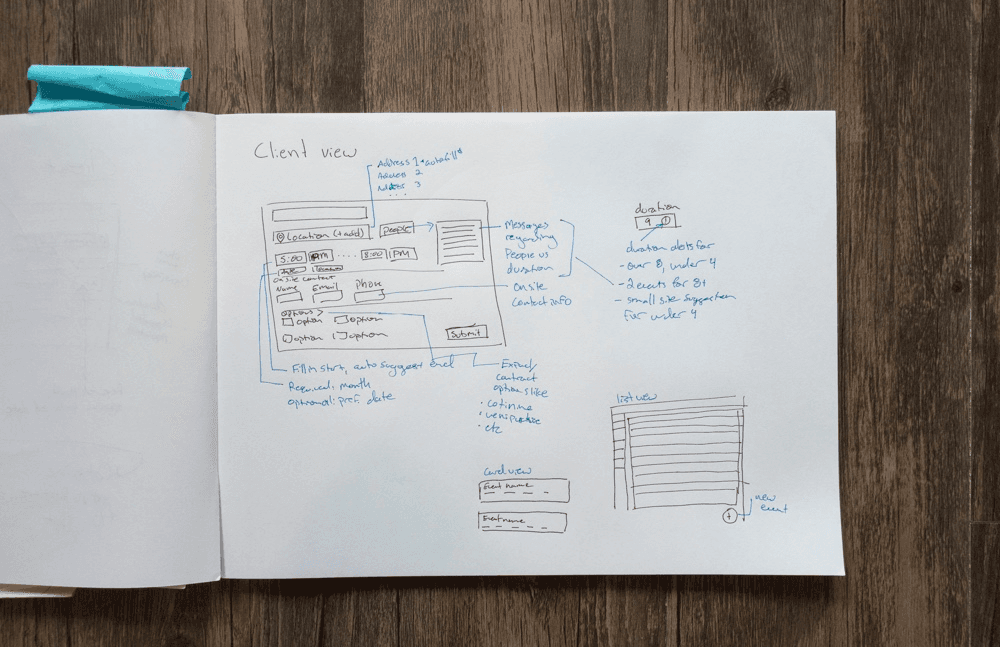 Client view
Address 1 *autofill*
Address 2
Address 3
....
Location (+add)
People
5:00 PM .... 8:00 PM
Date
on site contact
Name Email Phone
options >
option option
option option
Submit
Messages
regarding
People vs
duration
Onsite
Contact info
Fill in start, auto suggest end
Required: month
optional: pref. date
Expand/
contract
options like
· cotinine
· venipuncture
· etc
duration
9 !
duration alerts for
- over 8, under 4
- 2 events for 8+
- small site suggestion
for under 4
list view
new
event
+
Card view
Event name
Event name